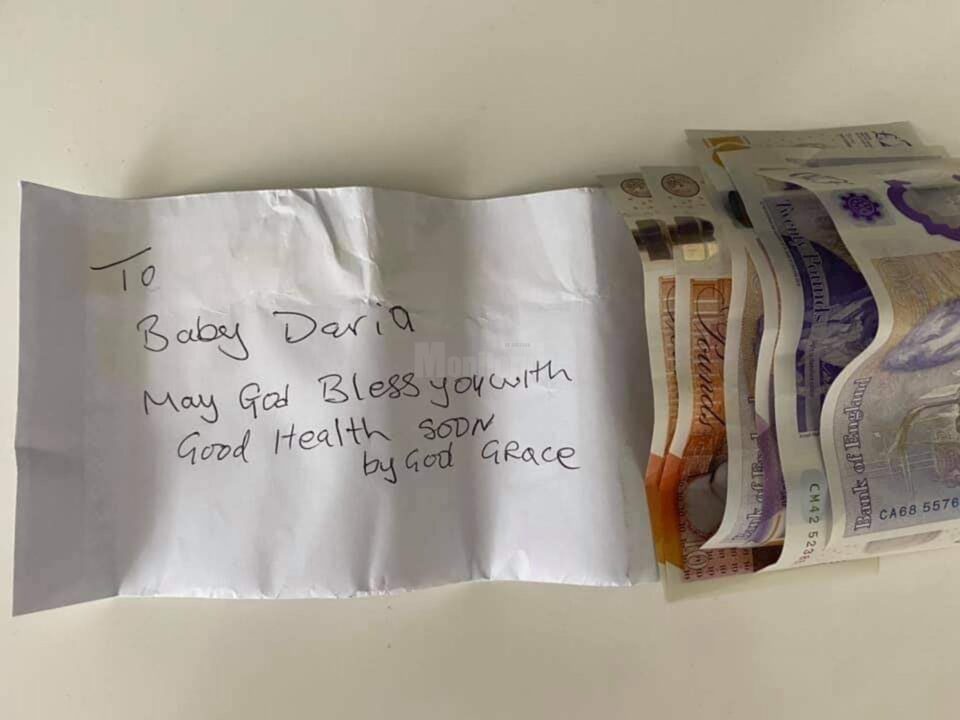 To
Baby Daria
May God Bless you with
Good Health soon
by God GRace
Pounds
Twenty Pounds
Bank of England
Bank of England
CA68 5576